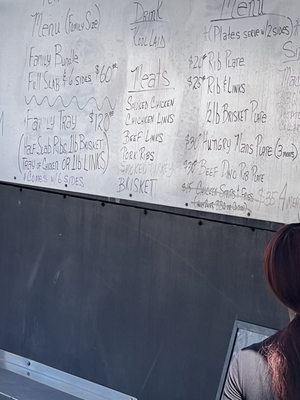 Menu (Family Size)
Family Bundle
Full Slab & 6 sides $60
Family Tray $120
(Half Slab Ribs 1lb Brisket
Tray of Chicken OR 1lb LINKS)
Comes w/ 6 SIDES
Drink
KOOLAID
Meats
SAUCED CHICKEN
CHICKEN LINKS
BEEF LINKS
PORK RIBS
SMOKED TURKEY
BRISKET
Menu
(Plates serve w/ 2 sides
Rib Plate
Rib & Links
1/2lb Brisket Plate
Hungry Mans Plate (3 meats)
Beef Dino Rib Plate
$35